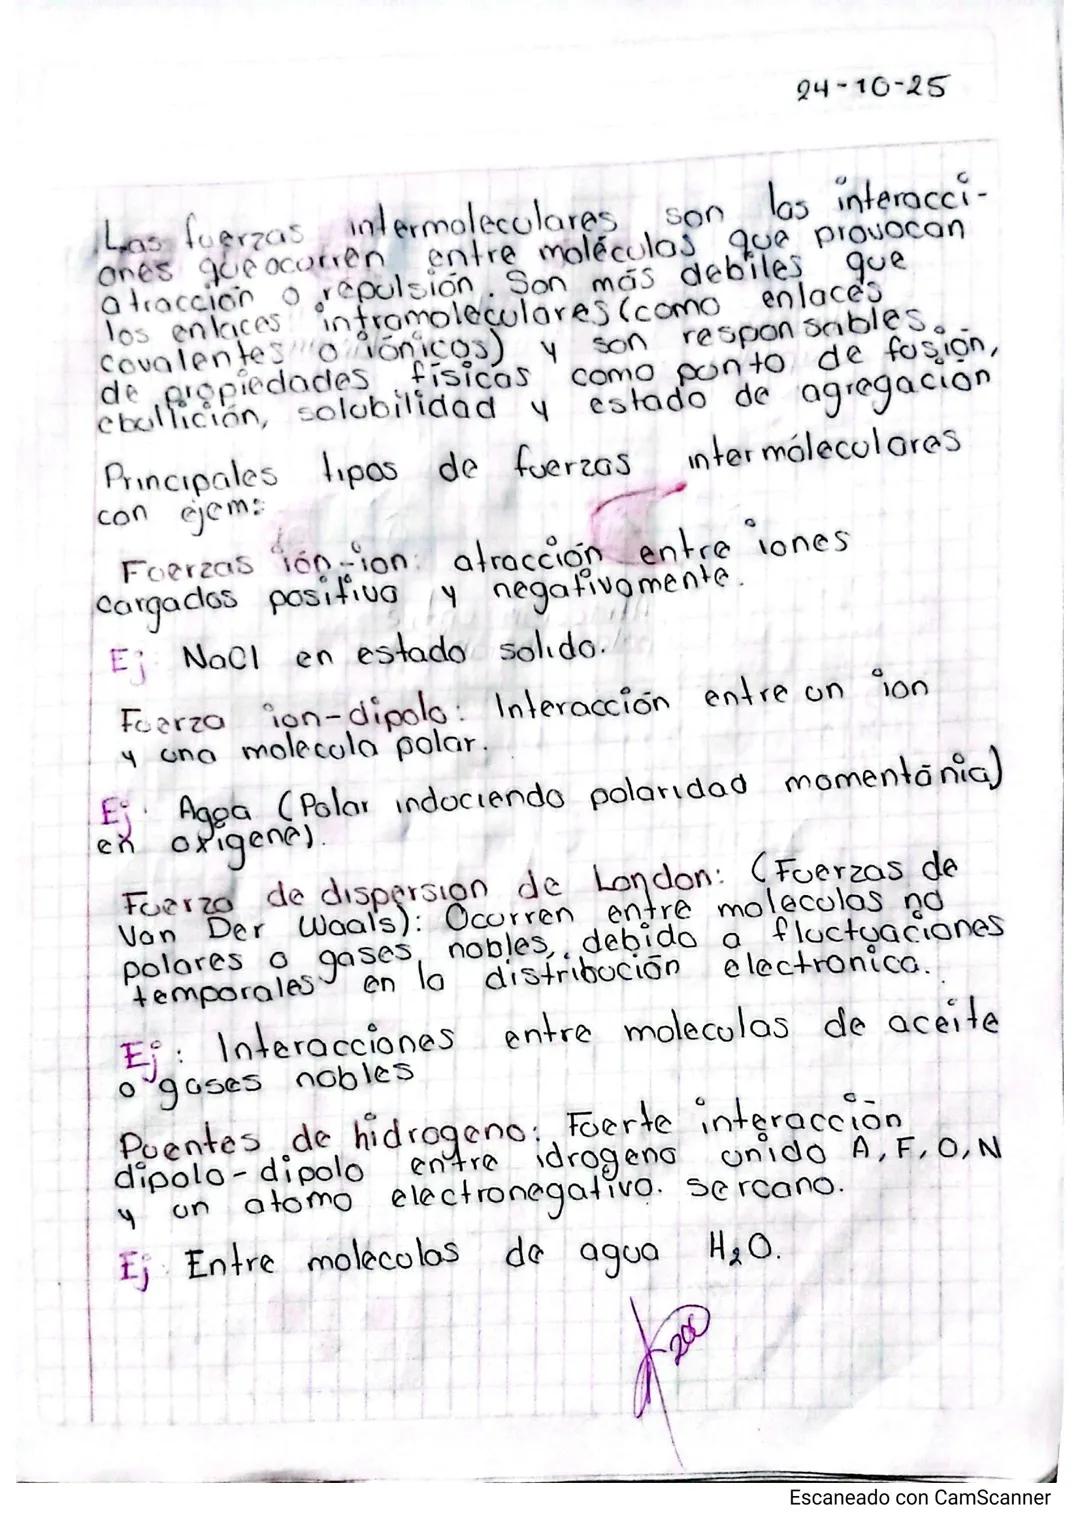 24-10-25
Las fuerzas intermoleculares son las interacci-
ones que ocurren entre moléculas que provocan
atracción o repulsión. Son más debiles que
los enlaces intramoleculares (como enlaces
covalentes o iónicos) y son responsables
de propiedades físicas como punto de fusión,
ebullición, solubilidad y estado de agregación
Principales tipos de fuerzas intermóleculares
con ejem:
Fuerzas ión-ion: atracción entre iones
cargados positivo y negativamente.
Ej NaCl en estado solido.
Fuerza ion-dipolo: Interacción entre un ion
y una molecula polar.
Ej. Agua (Polar induciendo polaridad momentánia)
en oxigene).
Fuerza de dispersion de London: (Fuerzas de
Van Der Waals): Ocurren entre moleculas no
polares o gases nobles, debido a fluctuaciones
temporales en la distribución electronica.
Ej: Interacciones entre moleculas de aceite
o gases nobles
Puentes de hidrogeno: Fuerte interacción
dipolo-dipolo entre idrogeno unido A, F, O, N
y un atomo electronegativo. sercano.
Ej Entre moleculas de agua H₂O.
Escaneado con CamScanner